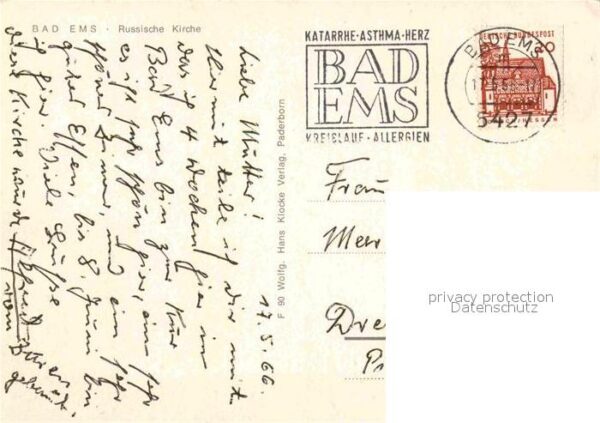 BAD EMS · Russische Kirche
KATARRHE·ASTHMA·HERZ
BAD
EMS
KREISLAUF·ALLERGIEN
DEUTSCHE BUNDESPOST
20
BAD EMS
5427
F 90 Wolfg. Hans Klocke Verlag, Paderborn
17.5.66.
Liebe Mutter!
Hier mit teile ich Dir mit.
das ich 4 Wochen hier in
Bad Ems bin zur Kur
es ist sehr schön hier, ein sehr
schönes Zimmer, und ein sehr
gutes Essen, bis 8. Juni bin
ich hier. Viele Grüsse
diese Kirche wurde
vom
Frau
Dre
privacy protection
Datenschutz